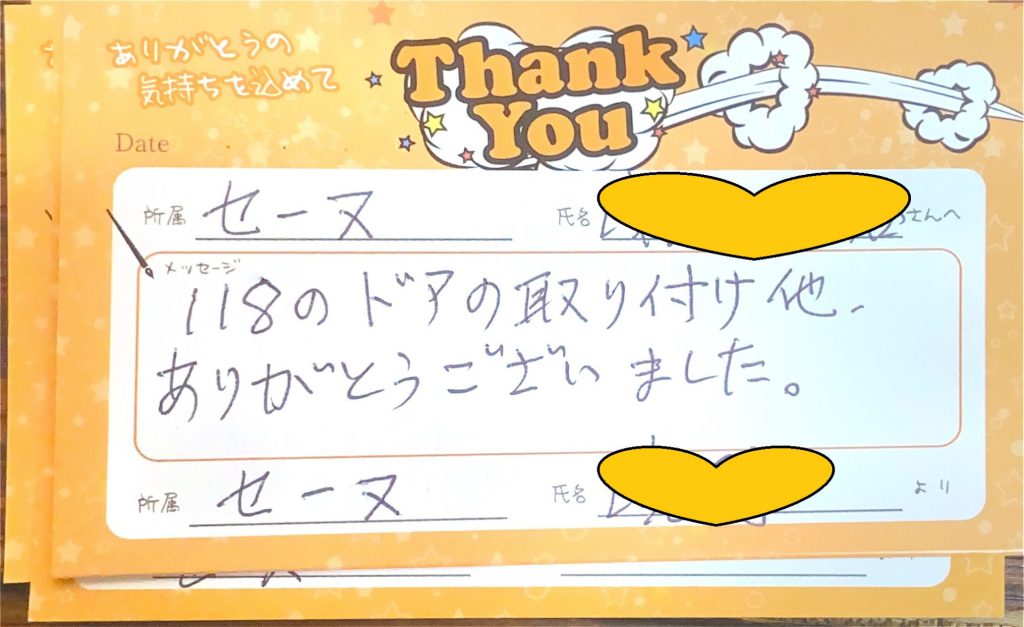 ありがとうの
気持ちを込めて
Thank
You
Date
所属 セーヌ 氏名 さんへ
メッセージ
118のドアの取り付け他、
ありがとうございました。
所属 セーヌ 氏名 より